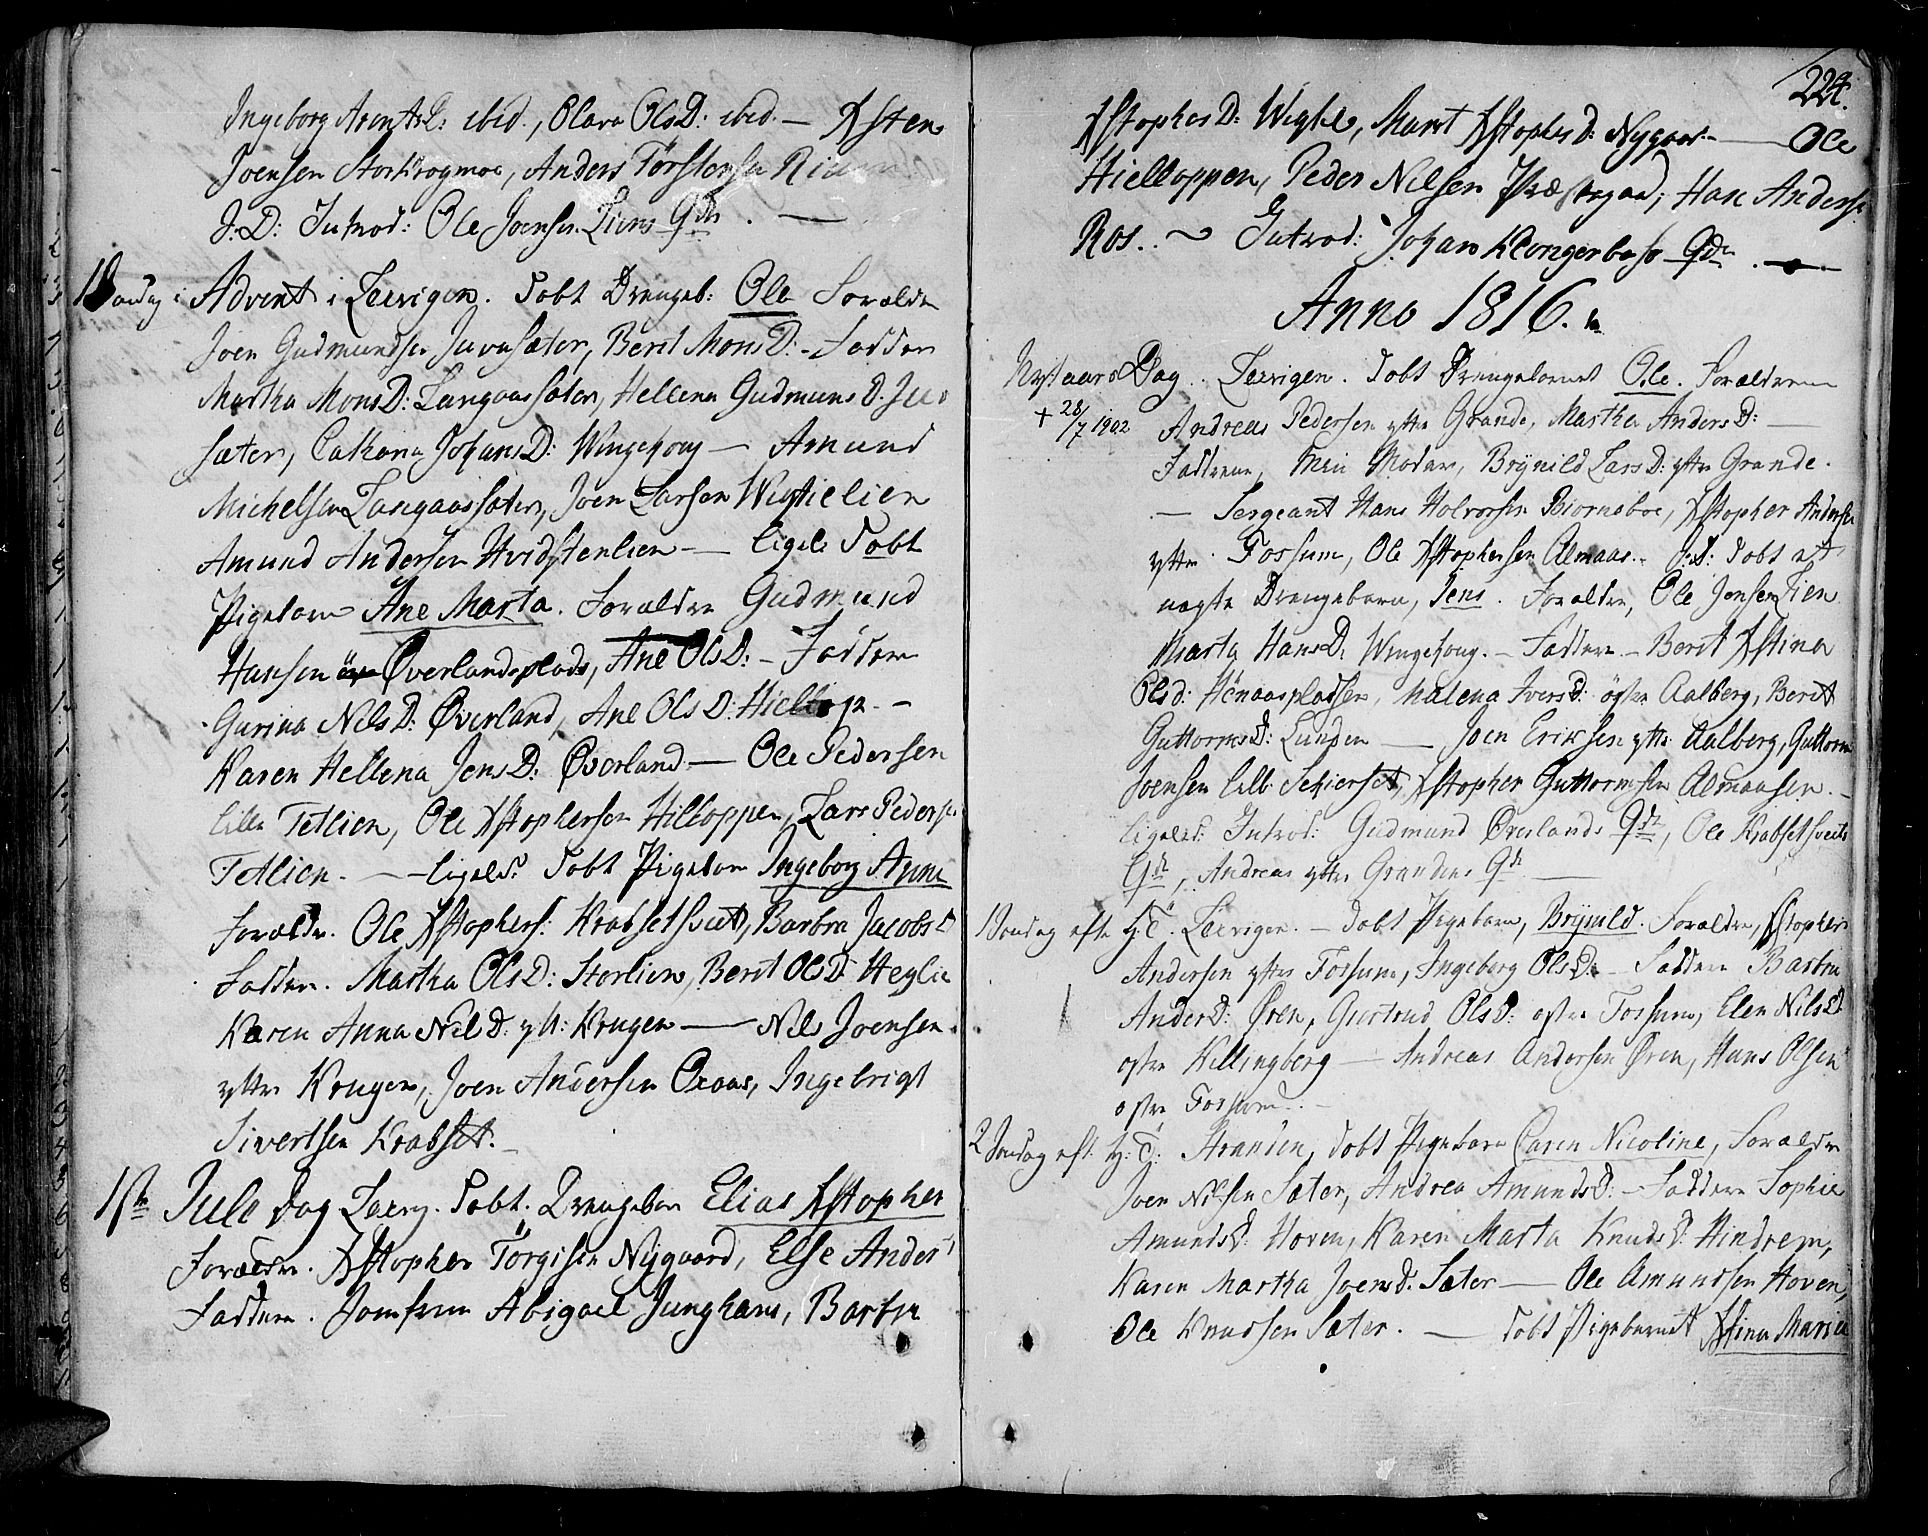 Ingeborg ArentsD: ibid., Olava OlsD: ibid. — Xsten
Joensen Storkrogmoe, Anders Törstensen
J.D: Introd: Ole Joensen Liens Qde. —
1 Søndag i Advent i Lexvigen. Døbt Drengeb: Ole Forældre
Joen Gudmundsen Juvasæter, Berit MonsD: - Faddere
Martha MonsD: Langaassæter, Hellena GudmunsD. Juva
sæter, Cathrina JohansD: Wingehoug — Amund
Michelsen Langaassæter, Joen Larsen Wigtielien
Amund Andersen Hvidstenlien — ligel: Døbt
Pigebarn Ane Marta. Forældre Gudmund
Hansen Øverlandsplads, Ane OlsD: - Faddere
Gurina NilsD: Øverland, Ane OlsD: Hiellop. -
Karen Hellena JensD: Øverland — Ole Pedersen
lille Tetlien, Ole Xstophersen Hilloppen, Lars Peders:
Tetlien. — ligelsd: Døbt Pigebarn Ingeborg Anna
Foræld. Ole Xstophers: Krabsetsvet, Barbra JacobsD
Faddere. Martha OlsD: Storlien, Berit OlsD: Heglie
Karen Anna NilsD: ytt: Krugen — Nils Joensen
yttre Krugen, Joen Andersen Oxaas, Ingebrigt
Sivertsen Krabset. -
1ste Jule Dag Lexvig. Døbt. Drengebar Elias Xstopher
Forældre. Xstopher Törgisen Nygaard, Else Anders
Faddere. Jomfrue Abigael Junghans, Barbra
224.
XstophersD: Wigtil, Marit XstophersD: Nygaar — Ole
Hielloppen, Peder Nilsen Præstegaar, Hans Anders:
Ros.. ~ Introd: Johan Klongerboes Qde. —
Anno 1816.
Nytaars Dag. Lexvigen. Døbt Drengebarnet Ole. Forældrene
+ 28/7 1902 Andreas Pedersen yttre Grande, Martha AndersD: —
Faddrene, Moder, Brynild LarsD: yttre Grande.
— Sergeant Hans Holvorsen Biorneboe, Xstopher Andersen
yttre Fossum, Ole Xstophersen Almaas. J:D: Døbt et
uægte Drengebarn, Jens. Forældre, Ole Jensen Lien
Marta HansD: Wingehoug. - Faddere - Berit Xstina
Olsd: Hönaaspladsen, Malena IversD: östre Aalberg, Berit
GuttormsD: Lunden — Joen Eriksen yttre Aalberg, Guttorm
Joensen lill: Schierset, Xstopher Guttormsen Almaasen. -
ligelsd: Introd: Gudmund Øverlands Qde, Ole Krabsetsveets
Qde, Andreas yttre Grandens Qde —
1 Søndag efte H.T. Lexvigen. - Døbt Pigebarn, Brynild. Forældre, Xstopher
Andersen yttre Fossum, Ingeborg OlsD: - Faddere Barbra
AnderD: Øren, Giertrud OlsD: østre Fossum, Elen NilsD
østre Killingberg — Andreas Andersen Øren, Hans Olsen
østre Fossum. -
2 Søndag eft. H:T: Stranden, Døbt Pigebarn Caren Nicoline, Forældre
Joen Nilsen Sæter, Andrea AmundsD: - Faddere Sophie
AmundsD: Hoven, Karen Marta KnudsD: Hindrem,
Karen Martha JoensD: Sæter — Ole Amundsen Hoven,
Ole Knudsen Sæter. — Døbt Pigebarnet Xstina Maria